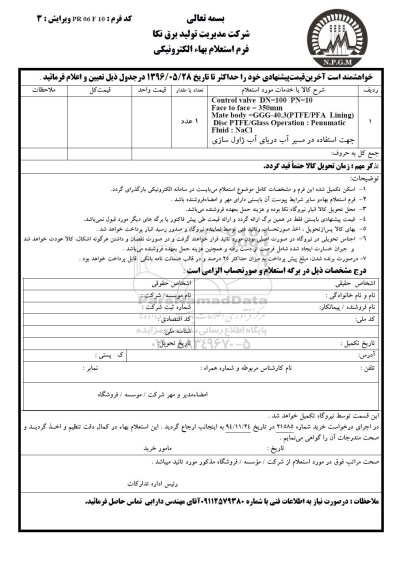 بسمه تعالی
شرکت مدیریت تولید برق نکا
فرم استعلام بهاء الکترونیکی
کد فرم : PR 06 F 10 ویرایش : 3
N.P.G.M
خواهشمند است آخرین قیمت پیشنهادی خود را حداکثر تا تاریخ 1396/05/28 درجدول ذیل تعیین و اعلام فرمائید .
ردیف شرح کالا یا خدمات مورد استعلام تعداد یا مقدار قیمت واحد قیمت کل ملاحظات
1 Control valve DN=100 PN=10 1 عدد
Face to face = 350mm
Mate body =GGG-40.3(PTFE/PFA Lining)
Disc PTFE/Glass Operation : Penumatic
Fluid : NaCl
جهت استفاده در مسیر آب دریای آب ژاول سازی
جمع کل به حروف:
تذکر مهم : زمان تحویل کالا حتماً قید گردد.
توضیحات:
1- اسکن تکمیل شده این فرم و مشخصات کامل موضوع استعلام می‌بایست در سامانه الکترونیکی بارگذاری گردد.
2- فرم استعلام بهاءو سایر شرایط پیوست آن بایستی دارای مهر و امضاءفروشنده باشد .
3- محل تحویل کالا انبار نیروگاه نکا بوده و هزینه حمل بعهده فروشنده می‌باشد.
4- قیمت پیشنهادی بایستی فقط در همین برگ ارائه گردد و ارائه قیمت طی پیش فاکتور یا برگه های دیگر مورد قبول نمی‌باشد.
5- بهای کالا پس‌ازتحویل ، اخذ صورتحساب وتائید فنی توسط نماینده نیروگاه و صدور رسید انبار پرداخت خواهد شد .
6- اجناس تحویلی در نیروگاه در صورت اصلی بودن مورد تائید قرار خواهند گرفت و در صورت نقصان و داشتن هرگونه اشکال، کالا عودت خواهد شد
و جبران خسارت ایجاد شده شامل فرصت از دست رفته و همچنین هزینه حمل بعهده فروشنده می‌باشد.
7- درصورت برنده شدن، مبلغ پیش پرداخت به میزان حداکثر 25 درصد و در قالب ضمانت نامه بانکی قابل پرداخت خواهد بود .
درج مشخصات ذیل در برگه استعلام و صورتحساب الزامی است :
اشخاص حقیقی اشخاص حقوقی
نام و نام خانوادگی : نام موسسه/ شرکت :
نام فروشنده / پیمانکار: شماره ثبت شرکت :
کد ملی: کد اقتصادی :
شناسه ملی:
تاریخ تکمیل : تاریخ تحویل:
آدرس: ک پستی :
تلفن : نام کارشناس مربوطه و شماره همراه : نمابر :
امضاءمدیر و مهر شرکت / موسسه / فروشگاه
این قسمت توسط نیروگاه تکمیل خواهد شد .
در اجرای درخواست خرید شماره 21585 در تاریخ 94/11/24 به اینجانب ارجاع گردید . این استعلام بهاء در کمال دقت تنظیم و اخذ گردید و
صحت مندرجات آن را گواهی می‌نمایم .
تاریخ : مامور خرید
صحت مراتب فوق در مورد استعلام از شرکت / مؤسسه / فروشگاه مذکور مورد تائید میباشد .
رئیس اداره تدارکات
ملاحظات : درصورت نیاز به اطلاعات فنی با شماره 09112579380آقای مهندس دارابی تماس حاصل فرمائید.